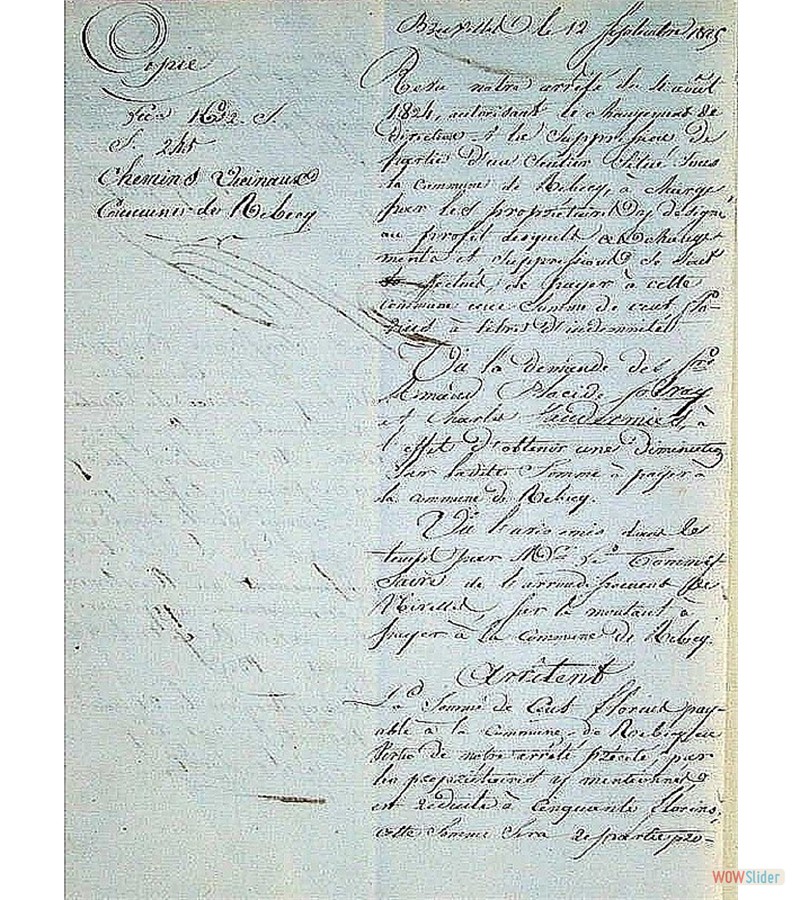 Copie
1632. S.
S. 245
Chemins Vicinaux
Commune de Rebecq
Bruxelles le 12 Septembre 1825
Revu notre arrêté du 4 août
1824, autorisant le changement de
direction & la Suppression de
partie d'un Sentier Situé Sous
la Commune de Rebecq, à charge
par les propriétaires y désignés
au profit desquels ces change-
ments et Suppressions Se Sont
effectués, de payer à cette
commune une Somme de cent flo-
rins à titre d'indemnité
Vu la demande des Srs
Placide
et Charles à
l'effet d'obtenir une diminution
Sur ladite Somme à payer à
la commune de Rebecq.
Vu l'avis émis dans le
temps par Mr le Commis-
saire de l'arrondissement de
Nivelles, Sur le montant à
payer à la Commune de Rebecq.
Arrêtent
La Somme de Cent florins pay-
able à la Commune de Rebecq en
Vertu de notre arrêté précité, par
les propriétaires y mentionnés
est réduite à Cinquante florins,
cette Somme Sera répartie pro-
WOWSlider